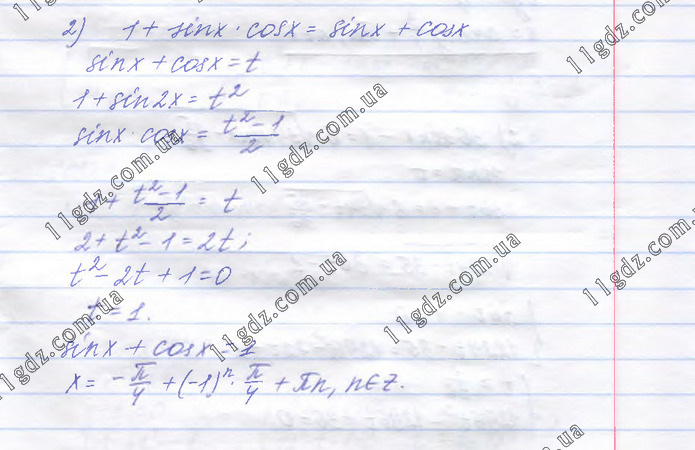 2) 1 + sinx · cosx = sinx + cosx
sinx + cosx = t
1 + sin2x = t²
sinx · cosx = (t² - 1)/2
1 + (t² - 1)/2 = t
2 + t² - 1 = 2t;
t² - 2t + 1 = 0
t = 1.
sinx + cosx = 1
x = -π/4 + (-1)ⁿ · π/4 + πn, n∈Z.
11gdz.com.ua
11gdz.com.ua
11gdz.com.ua
11gdz.com.ua
11gdz.com.ua
11gdz.com.ua
11gdz.com.ua
11gdz.com.ua
11gdz.com.ua